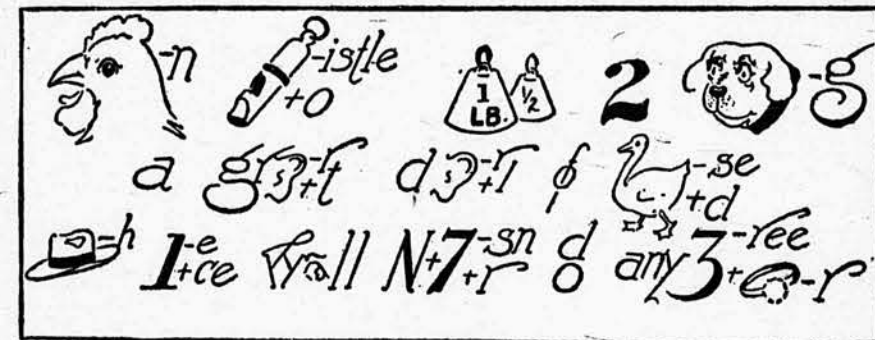 -n -istle +o 1 LB. 1/2 2 -g
a gr -r +t d -r +l of -se +d
-h 1 -e +ce Will N+7 -sn +r do any 3 -ree + -r